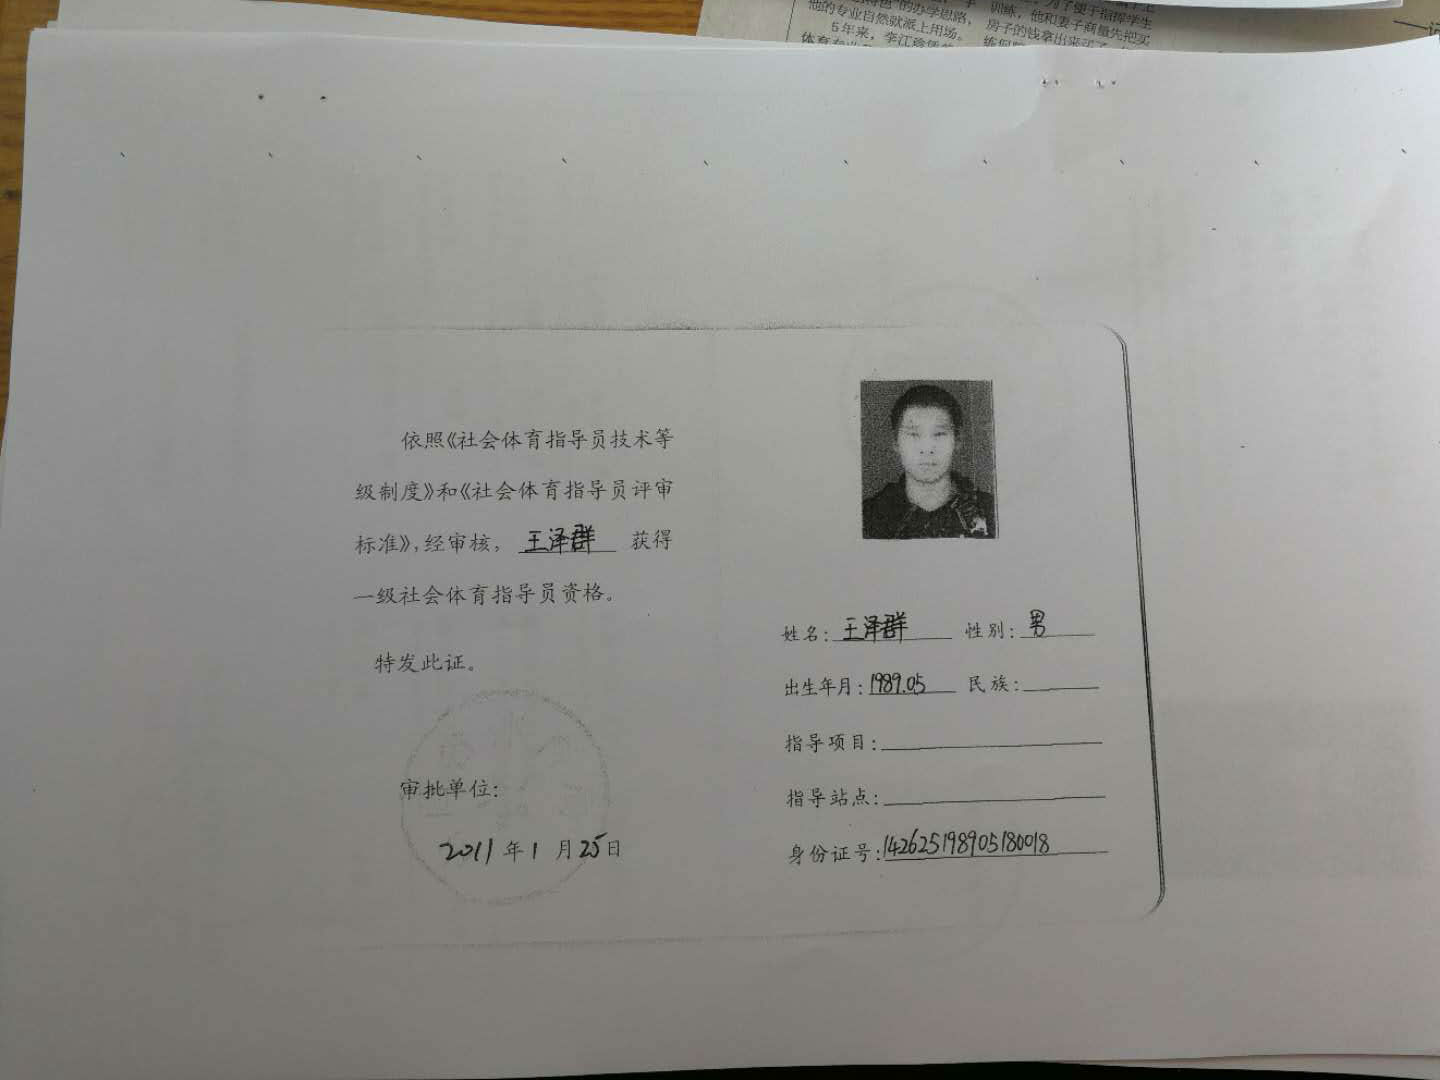 他的专业自然就派上用场。
5年来，李江
训练，他和妻子商量先把买
房子的钱拿出来买了
依照《社会体育指导员技术等
级制度》和《社会体育指导员评审
标准》，经审核， 王泽群 获得
一级社会体育指导员资格。
特发此证。
审批单位：
2011年1月25日
姓名：王泽群 性别：男
出生年月：1989.05 民族：
指导项目：
指导站点：
身份证号：142625198905180018